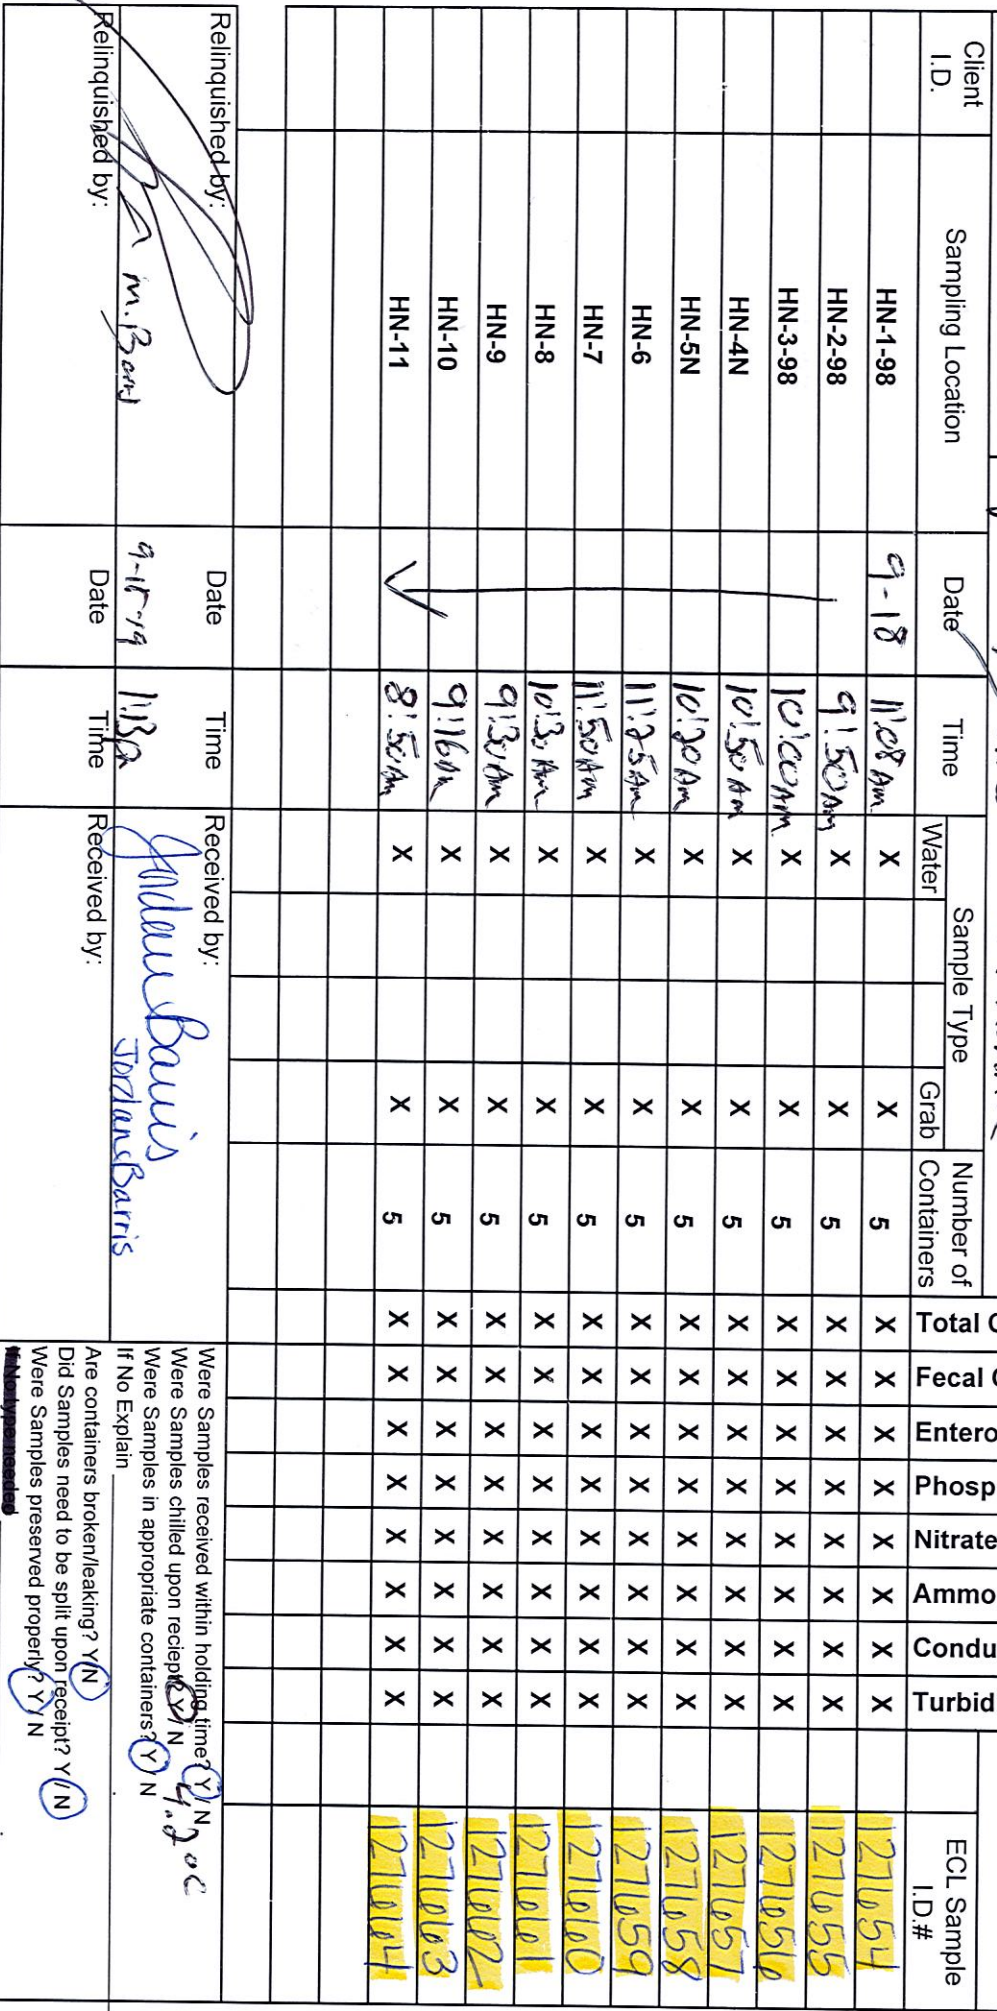 Client I.D. Sampling Location Date Time Sample Type Number of Containers ECL Sample I.D.#
Water Grab Total Fecal Entero Phosp Nitrate Ammo Condu Turbid
HN-1-98 9-18 11:08 Am X X 5 X X X X X X X X 1276654
HN-2-98 9:50 Am X X 5 X X X X X X X X 1276655
HN-3-98 10:00 Am X X 5 X X X X X X X X 1276656
HN-4N 10:50 Am X X 5 X X X X X X X X 1276657
HN-5N 10:20 Am X X 5 X X X X X X X X 1276658
HN-6 11:25 Am X X 5 X X X X X X X X 1276659
HN-7 11:50 Am X X 5 X X X X X X X X 1276660
HN-8 10:30 Am X X 5 X X X X X X X X 1276661
HN-9 9:30 Am X X 5 X X X X X X X X 1276662
HN-10 9:16 Am X X 5 X X X X X X X X 1276663
HN-11 8:50 Am X X 5 X X X X X X X X 1276664
Relinquished by: Date Time Received by:
m. 9-18-19 Jordan Barris
Jordan Barris
Relinquished by: Date Time Received by:
Were Samples received within holding time? Y / N
Were Samples chilled upon reciept? Y / N 4.2°C
Were Samples in appropriate containers? Y / N
If No Explain
Are containers broken/leaking? Y/N
Did Samples need to be split upon receipt? Y / N
Were Samples preserved properly? Y / N
If No type needed